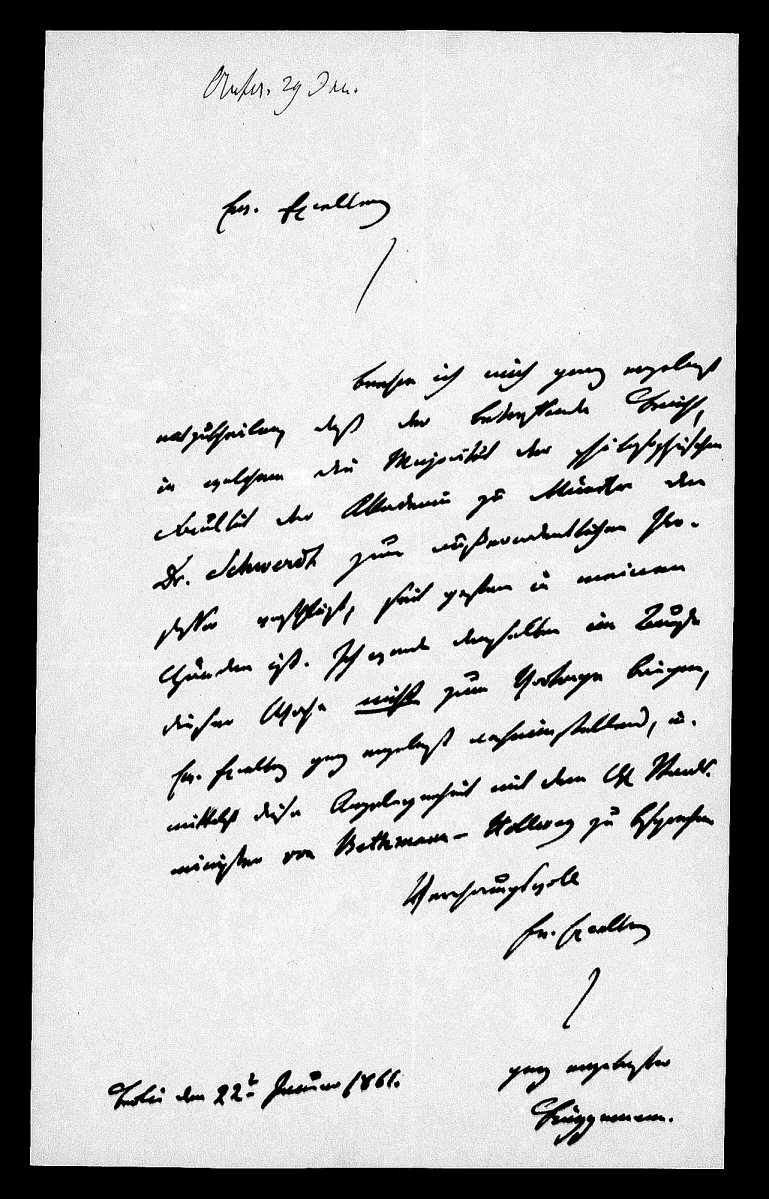 29 Jan.
Ew. Excellenz
beehre ich mich ganz ergebenst
mitzutheilen, daß der betreffende Bericht,
in welchem die Majorität der philosophischen
Facultät der Akademie zu Münster den
Dr. Schwerdt zum außerordentlichen Pro-
fessor vorschlägt, seit gestern in meinen
Händen ist. Ich werde denselben im Laufe
dieser Woche nicht zum Vortrage bringen,
Ew. Excellenz ganz ergebenst anheimstellend,
mittelst diese Angelegenheit mit dem Staats-
minister von Bethmann-Hollweg zu besprechen
Verehrungsvoll
Ew. Excellenz
ganz ergebenster
Berlin den 22t Januar 1861.
Brüggemann.